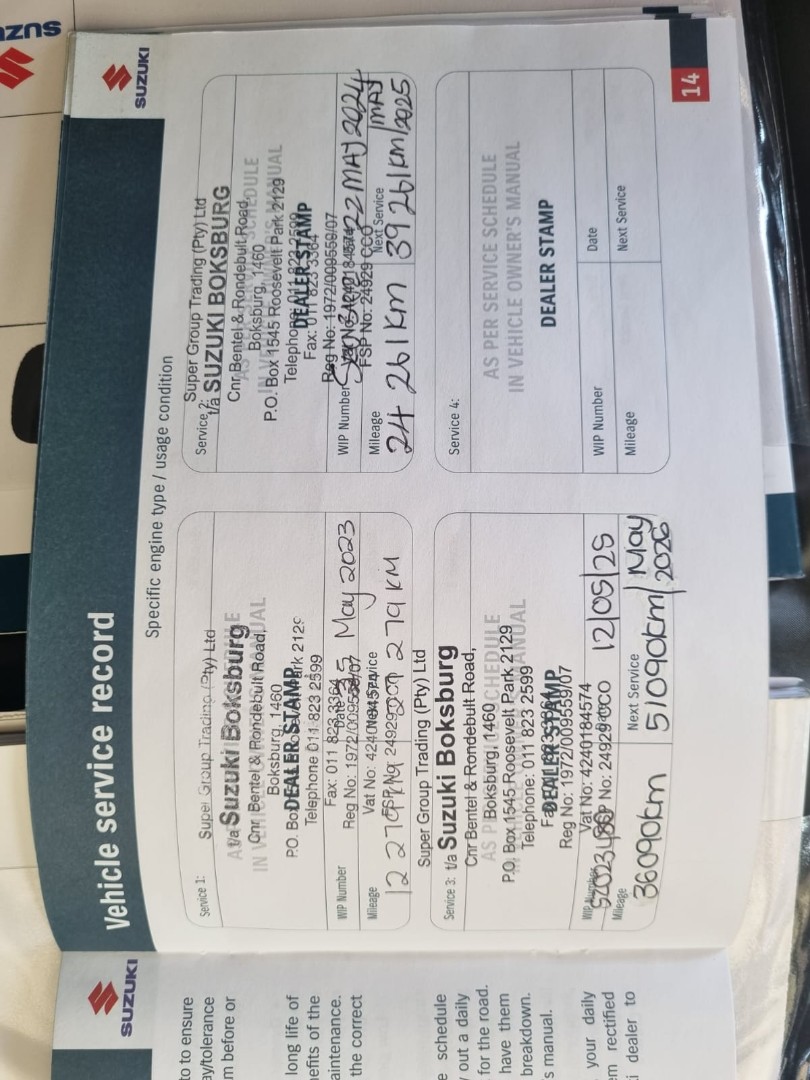 SUZUKI
SUZUKI
Vehicle service record
Specific engine type / usage condition
Service 1:
Super Group Trading (Pty) Ltd
t/a Suzuki Boksburg
Cnr Bentel & Rondebult Road,
Boksburg, 1460
P.O. Box 1545 Roosevelt Park 2129
DEALER STAMP
Telephone 011 823 2599
Fax: 011 823 3364
Reg No: 1972/009559/07
Vat No: 4240184574
FSP No: 24929
WIP Number
Date
May 2023
Mileage
Next Service
12 279
279 KM
Service 2:
Super Group Trading (Pty) Ltd
t/a SUZUKI BOKSBURG
Cnr Bentel & Rondebult Road,
AS PER SERVICE SCHEDULE
Boksburg, 1460
IN VEHICLE OWNER'S MANUAL
P.O. Box 1545 Roosevelt Park 2129
Telephone: 011 823 2599
DEALER STAMP
Fax: 011 823 3364
Reg No: 1972/009559/07
FSP No: 24929
WIP Number
22 MAY 2024
Mileage
Next Service
24 261km
39 261km/MAY 2025
Service 3:
Super Group Trading (Pty) Ltd
t/a Suzuki Boksburg
Cnr Bentel & Rondebult Road,
Boksburg, 1460
P.O. Box 1545 Roosevelt Park 2129
Telephone: 011 823 2599
DEALER STAMP
Reg No: 1972/009559/07
Vat No: 4240184574
FSP No: 24929
WIP Number
12/05/25
Mileage
Next Service
36090km
51090km/May 2026
Service 4:
AS PER SERVICE SCHEDULE
IN VEHICLE OWNER'S MANUAL
DEALER STAMP
WIP Number
Date
Mileage
Next Service
14
SUZUKI
to to ensure
ay/tolerance
m before or
long life of
nefits of the
aintenance.
the correct
e schedule
out a daily
for the road.
have them
breakdown.
s manual.
your daily
em rectified
dealer to